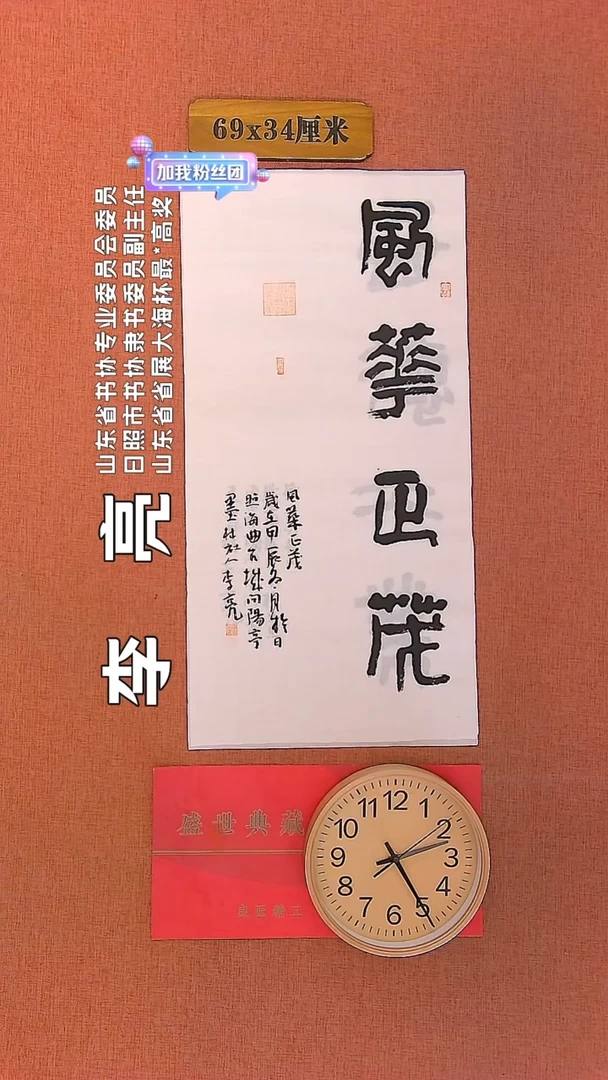 69x34厘米
加我粉丝团
山东省书协专业委员会委员
日照市书协隶书委员副主任
山东省省展大海杯最*高奖
李亮
風華正茂
風華正茂
歲在甲辰冬月於日
照海曲古城向陽亭
李亮
盛世典藏
12
1
2
3
4
5
6
7
8
9
10
11